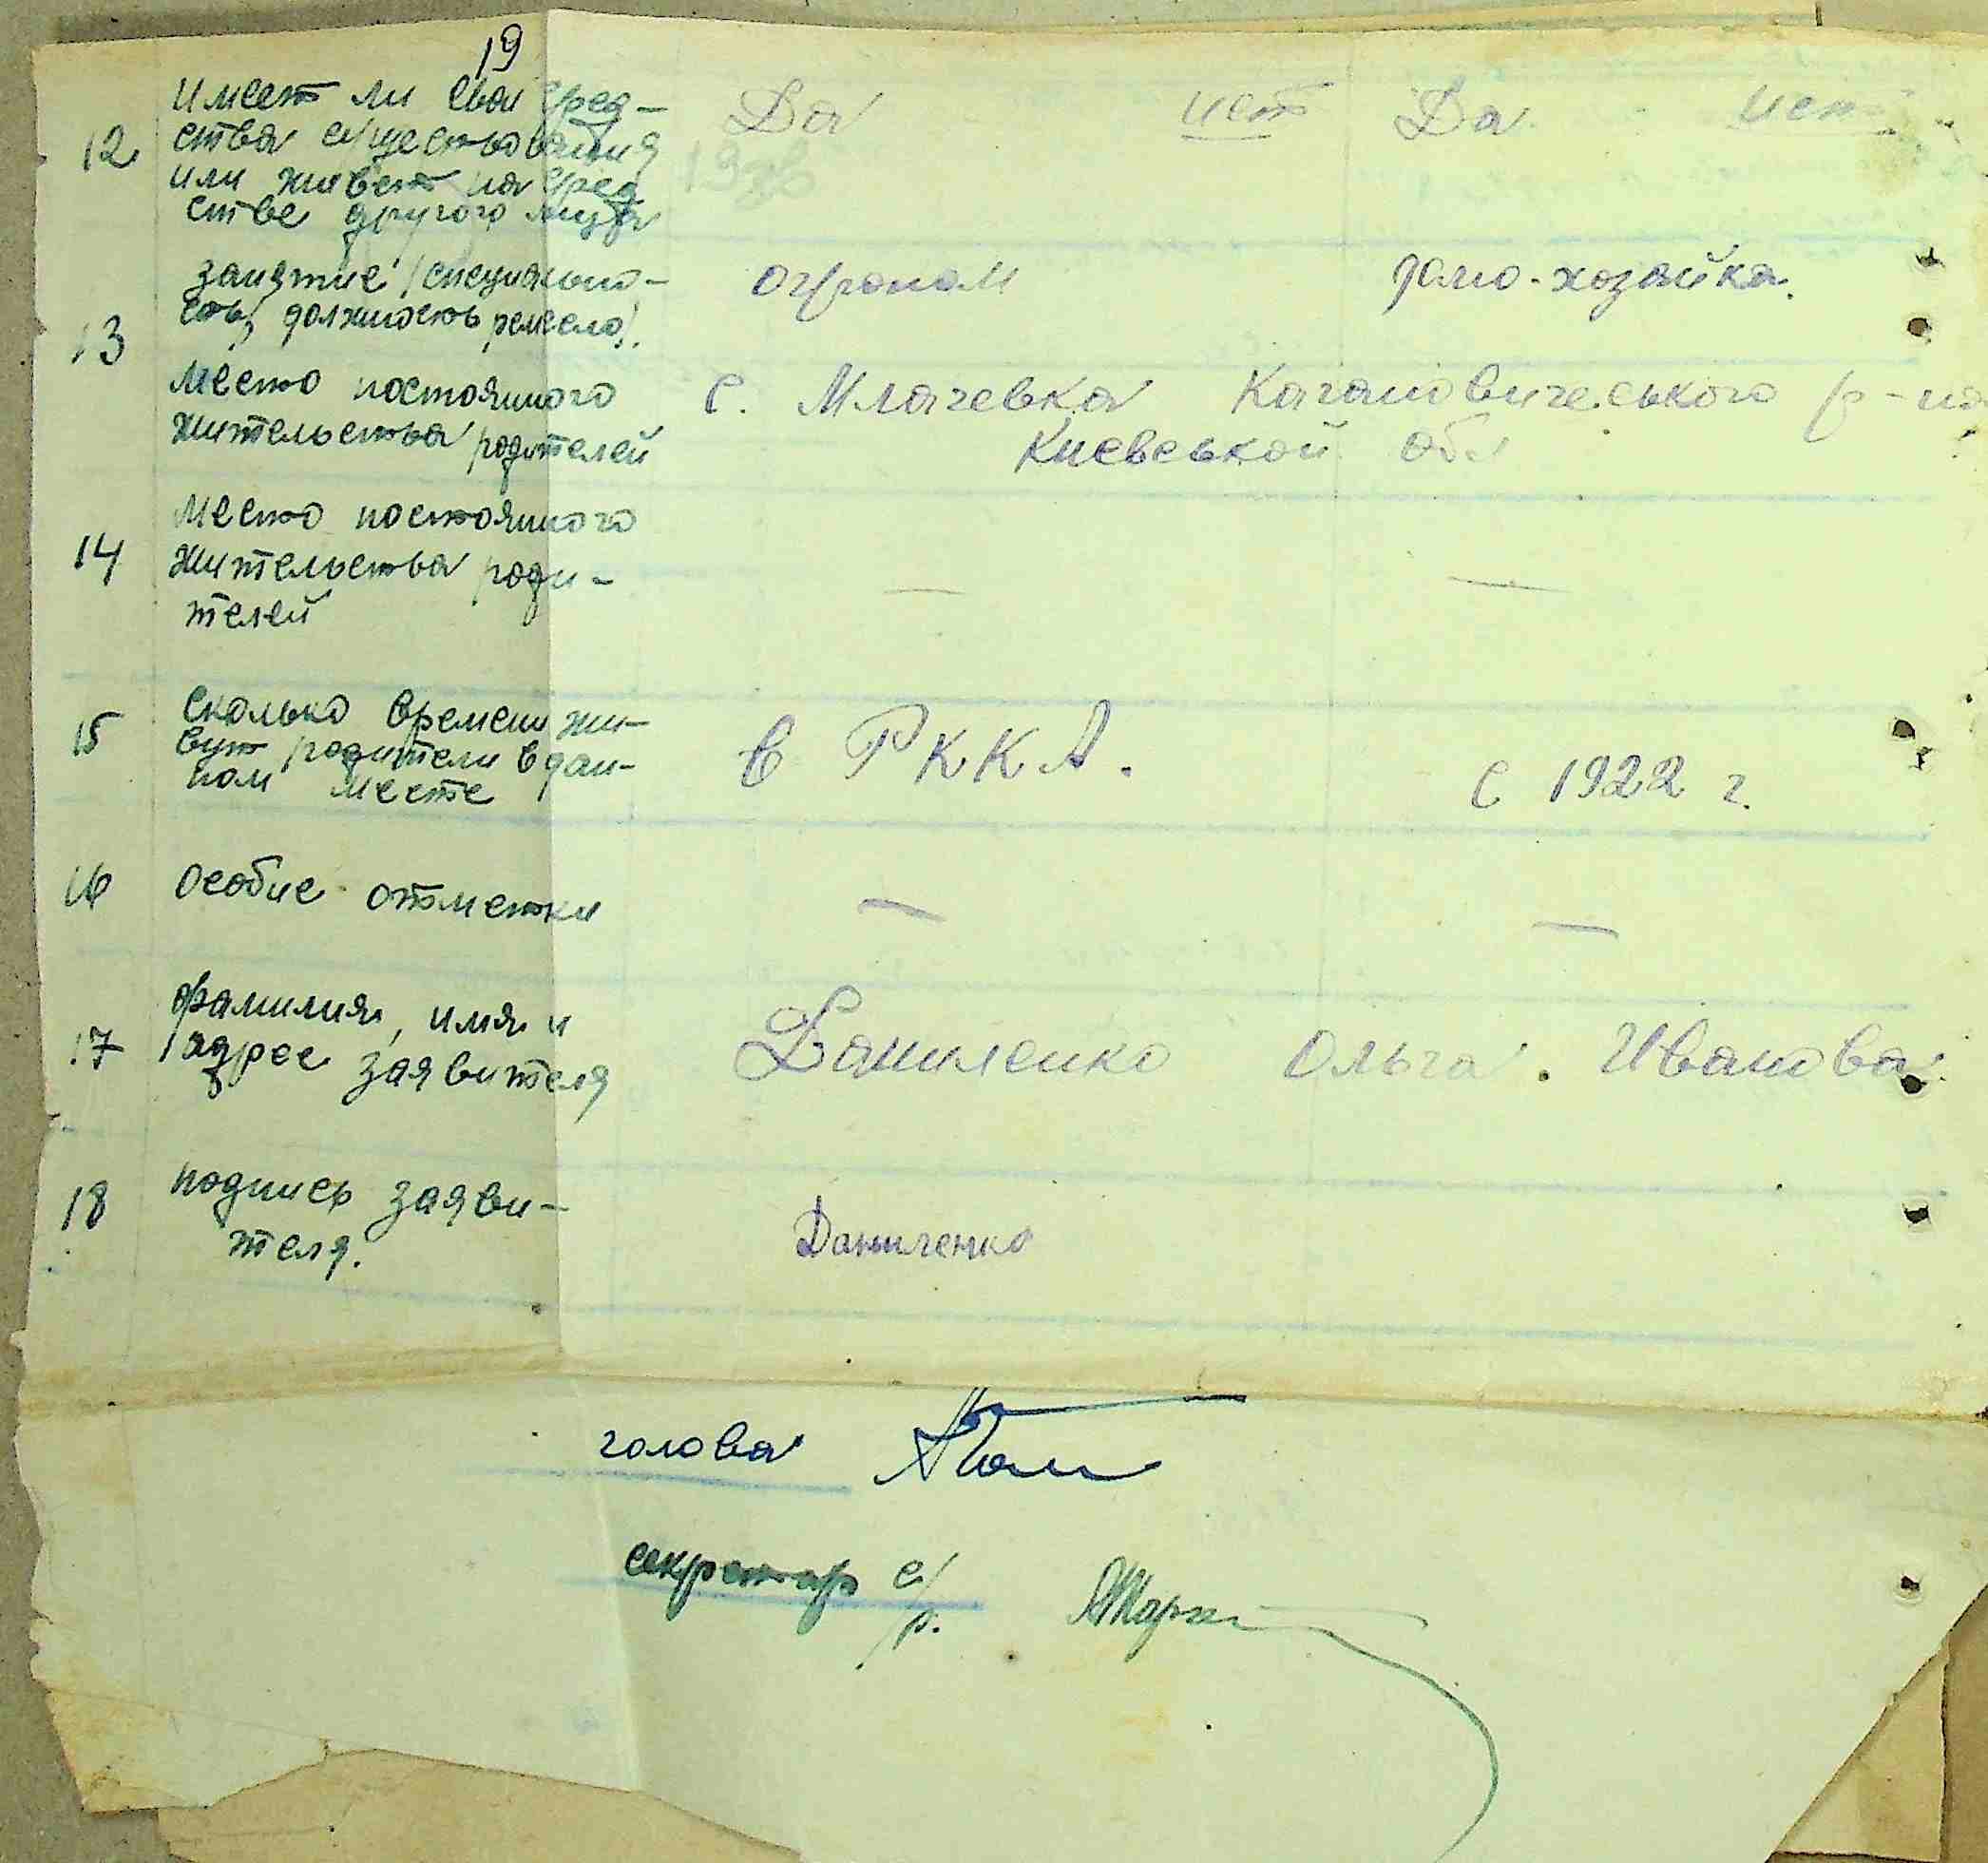 19
12 Имеет ли свои сред-
ства существования
или живет на сред
стве другого лица
Да нет Да нет
13 занятие /специально-
сть, должность ремесло/.
агроном домо-хозяйка.
место постоянного
жительства родителей
с. Млачевка Кагановичеського р-на
Киевськой обл
14 место постоянного
жительства роди-
телей
— —
15 Сколько времени жи-
вут родители в дан-
ном месте
в РККА. с 1922 г.
16 особие отметки
— —
17 фамилия, имя и
адрес заявителя
Даниленко Ольга. Иванова
18 подпись заяви-
теля.
Даниленко
голова
секретар с/р.